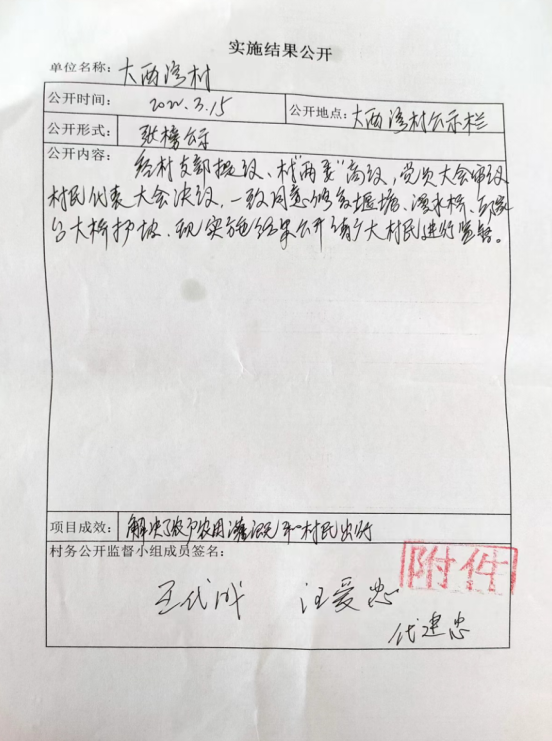 实施结果公开
单位名称：大两湾村
公开时间： 2022.3.15 公开地点：大两湾村公示栏
公开形式： 张榜公示
公开内容： 经村支部提议、村“两委”商议，党员大会审议
村民代表大会决议，一致同意修复堰塘、漫水桥、邱家
台大桥护坡、现实施结果公开请广大村民进行监督。
项目成效： 解决了农户农用灌溉和村民出行
村务公开监督小组成员签名：
附件
王代成 汪爱忠
代建忠